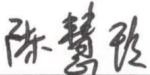 陈慧玲